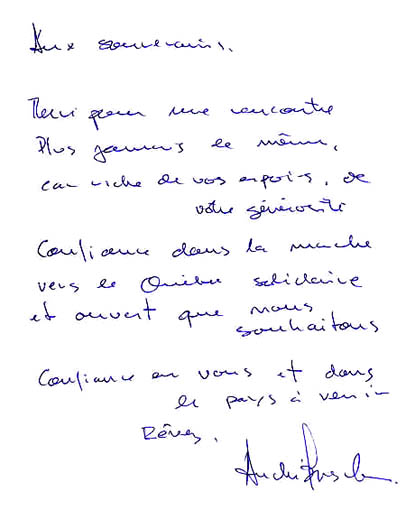 Aux souverains.
Merci pour une rencontre
Plus jamais le même,
car riche de vos espoirs, de
votre générosité
Confiance dans la marche
vers le Québec solidaire
et ouvert que nous
souhaitons
Confiance en vous et dans
le pays à venir
Rêves.